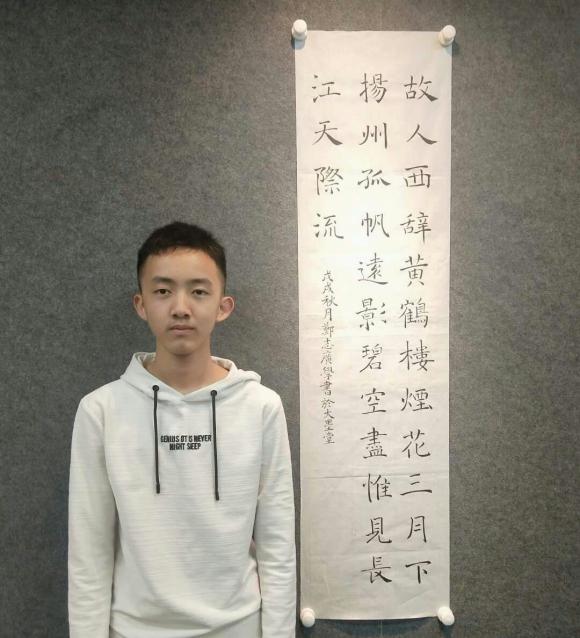 故人西辞黄鶴樓煙花三月下
揚州孤帆遠影碧空盡惟見長
江天際流
戊戌秋月鄭志廣學書於大墨堂
GENIUS OT IS NEVER
NIGHT SEEP